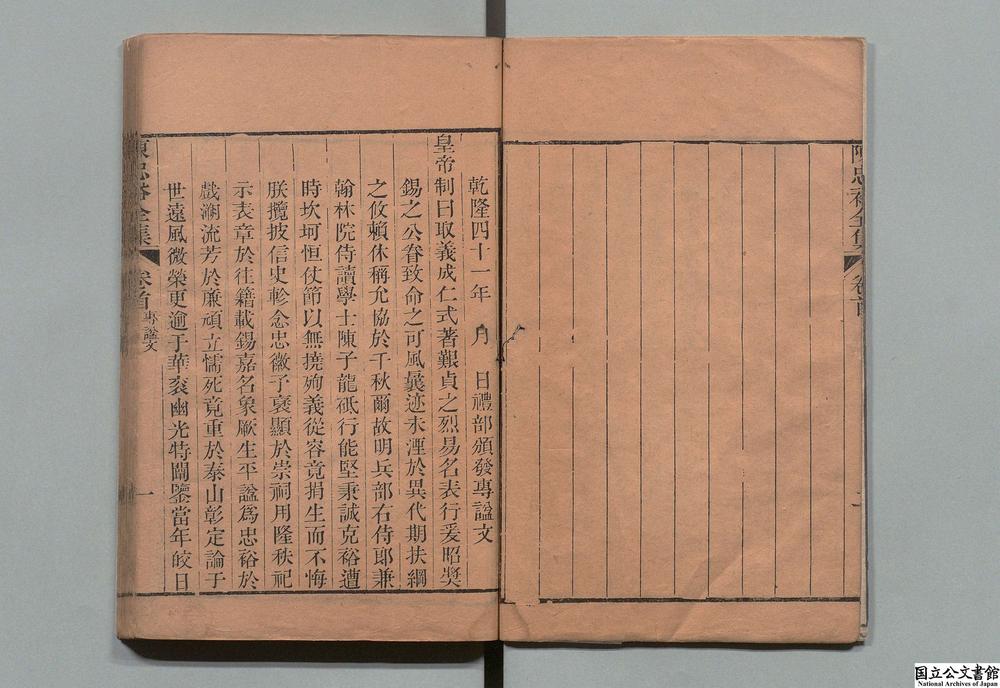 陳忠裕全集 卷首
二
乾隆四十一年 月 日禮部頒發專諡文
皇帝制曰取義成仁式著艱貞之烈易名表行爰昭獎
錫之公眷致命之可風曩迹未湮於異代期扶綱
之攸賴休稱允協於千秋爾故明兵部右侍郎兼
翰林院侍讀學士陳子龍砥行能堅秉誠克裕遭
時坎坷恒仗節以無撓殉義從容竟捐生而不悔
朕攬披信史軫念忠徽予褒顯於崇祠用隆秩祀
示表章於往籍載錫嘉名象厥生平諡爲忠裕於
戲溯流芳於廉頑立懦死竟重於泰山彰定論于
世遠風微榮更逾于華衮幽光特闡鑒當年皎日
陳忠裕全集 卷首 專諡文 一
国立公文書館
National Archives of Japan